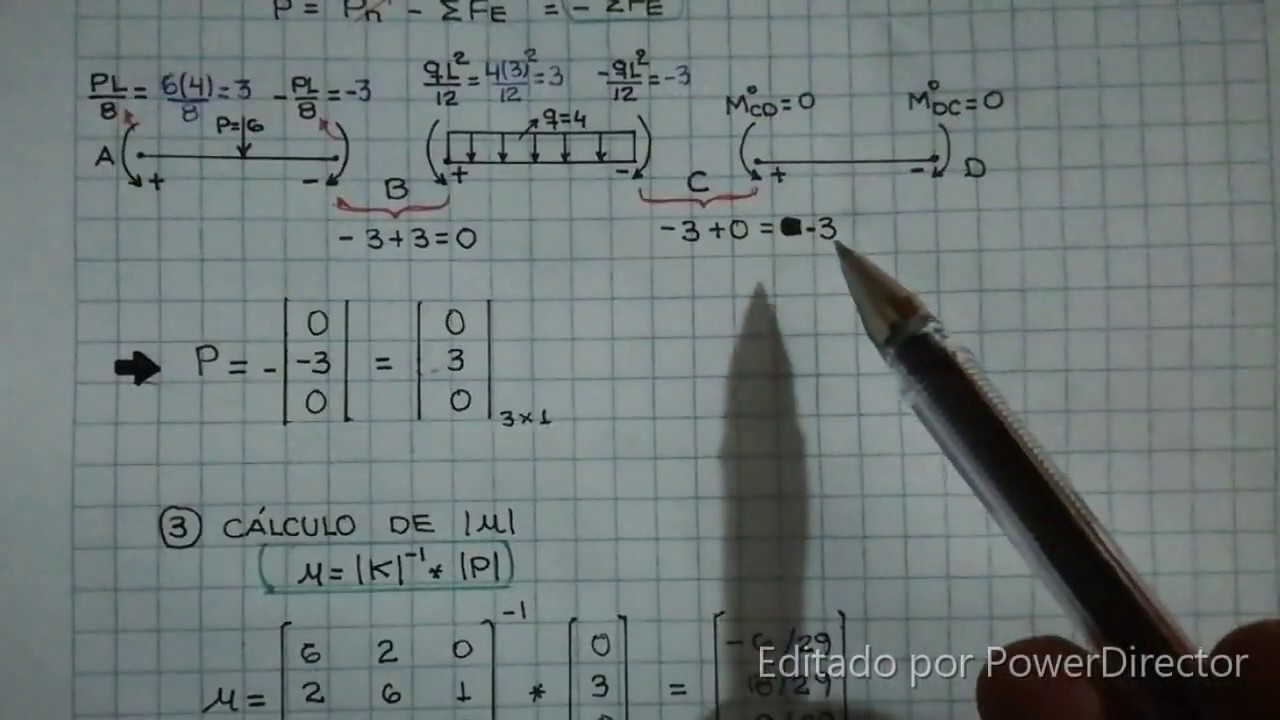 P = Pn - ΣFE = - ΣFE
PL/8 = 6(4)/8 = 3   -PL/8 = -3   qL²/12 = 4(3)²/12 = 3   -qL²/12 = -3   M°CD = 0   M°DC = 0
P=6   q=4
A   +   -   B   +   -   C   +   -   D
-3+3=0   -3+0 = -3
P = - | 0 | = | 0 |
| -3 | | 3 |
| 0 | | 0 | 3x1
3 CÁLCULO DE |μ|
μ = |K|⁻¹ * |P|
6 2 0 -1 0
μ = 2 6 1 * 3 =
Editado por PowerDirector